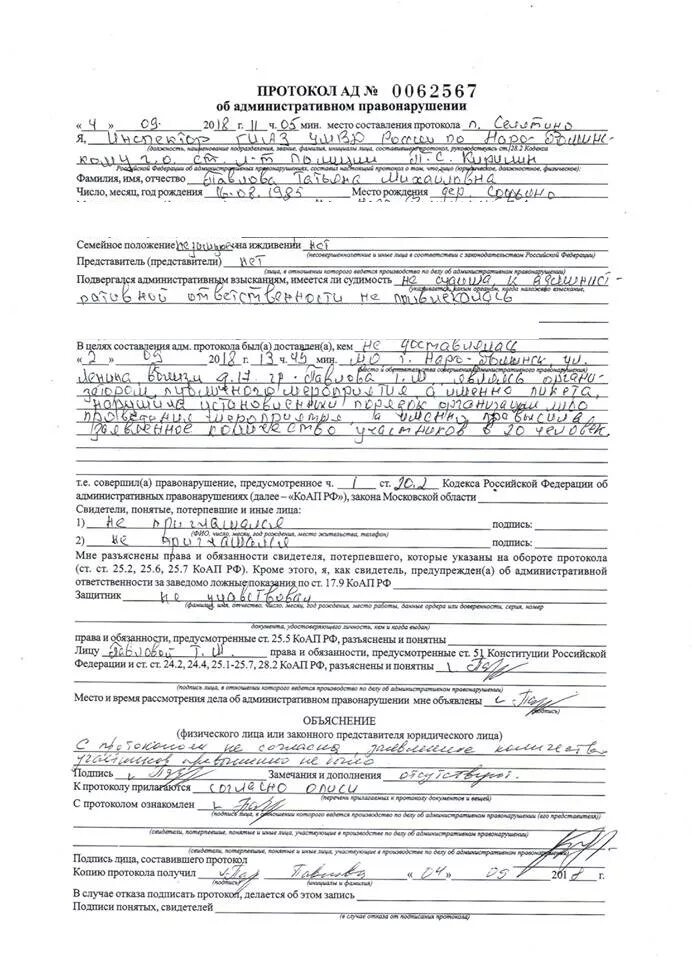 ПРОТОКОЛ АД № 0062567
об административном правонарушении
« 4 » 09. 2018 г. 11 ч. 05 мин. место составления протокола п. Селятино
Я, Инспектор ГИАЗ УМВД России по Наро-Фоминс-
(должность, наименование подразделения, звание, фамилия, инициалы лица, составившего протокол, руководствуясь ст.28.2 Кодекса
кому г.о. ст. л-т полиции Т.С. Кирилин
Российской Федерации об административных правонарушениях, составил настоящий протокол о том, что лицо (юридическое, должностное, физическое):
Фамилия, имя, отчество Павлова Татьяна Михаиловна
Число, месяц, год рождения 16.08.1985 Место рождения дер.
Семейное положение на иждивении нет
(несовершеннолетние и иные лица в соответствии с законодательством Российской Федерации)
Представитель (представители) нет
(лица, в отношении которого ведется производство по делу об административном правонарушении)
Подвергался административным взысканиям, имеется ли судимость не судима к админист-
(указывается, каким органом, когда наложено взыскание,
ративной ответственности не привлекалась
В целях составления адм. протокола был(а) доставлен(а), кем не доставлялась
« 2 » 09 2018 г. 13 ч. 45 мин. МО г. Наро-Фоминск, ул.
(место и обстоятельства совершения административного правонарушения)
Ленина, вблизи д.17. гр. Павлова Т.М являясь органи-
затором публичного мероприятия а именно пикета,
нарушила установленный порядок организации либо
проведения мероприятия, а именно превысила
заявленное количество участников в 20 человек.
т.е. совершил(а) правонарушение, предусмотренное ч. 1 ст. 20.2 Кодекса Российской Федерации об
административных правонарушениях (далее – «КоАП РФ»), закона Московской области
Свидетели, понятые, потерпевшие и иные лица:
1) не приглашался подпись:
(ФИО, число, месяц, год рождения, место жительства, телефон)
2) не приглашался подпись:
Мне разъяснены права и обязанности свидетеля, потерпевшего, которые указаны на обороте протокола
(ст. ст. 25.2, 25.6, 25.7 КоАП РФ). Кроме этого, я, как свидетель, предупрежден(а) об административной
ответственности за заведомо ложные показания по ст. 17.9 КоАП РФ
Защитник не участвовал
(фамилия, имя, отчество, число, месяц, год рождения, место работы, данные ордера или доверенности, серия, номер
документа, удостоверяющего личность, кем и когда выдан)
права и обязанности, предусмотренные ст. 25.5 КоАП РФ, разъяснены и понятны
Лицу Павловой Т.М. права и обязанности, предусмотренные ст. 51 Конституции Российской
Федерации и ст. ст. 24.2, 24.4, 25.1-25.7, 28.2 КоАП РФ, разъяснены и понятны
(подпись лица, в отношении которого ведется производство по делу об административном правонарушении)
Место и время рассмотрения дела об административном правонарушении мне объявлены
(подпись)
ОБЪЯСНЕНИЕ
(физического лица или законного представителя юридического лица)
С протоколом не согласна, заявленное количество
участников превышено не было
Подпись Замечания и дополнения отсутствуют.
К протоколу прилагаются согласно описи
(перечень прилагаемых к протоколу документов и вещей)
С протоколом ознакомлен
(подпись лица, в отношении которого ведется производство по делу об административном правонарушении (его представителя))
(свидетели, потерпевшие, понятые и иные лица, участвующие в производстве по делу об административном правонарушении)
(свидетели, потерпевшие, понятые и иные лица, участвующие в производстве по делу об административном правонарушении)
Подпись лица, составившего протокол
Копию протокола получил Павлова « 04 » 09 2018 г.
(подпись) (инициалы и фамилия)
В случае отказа подписать протокол, делается об этом запись
Подписи понятых, свидетелей
(в случае отказа от подписания протокола)